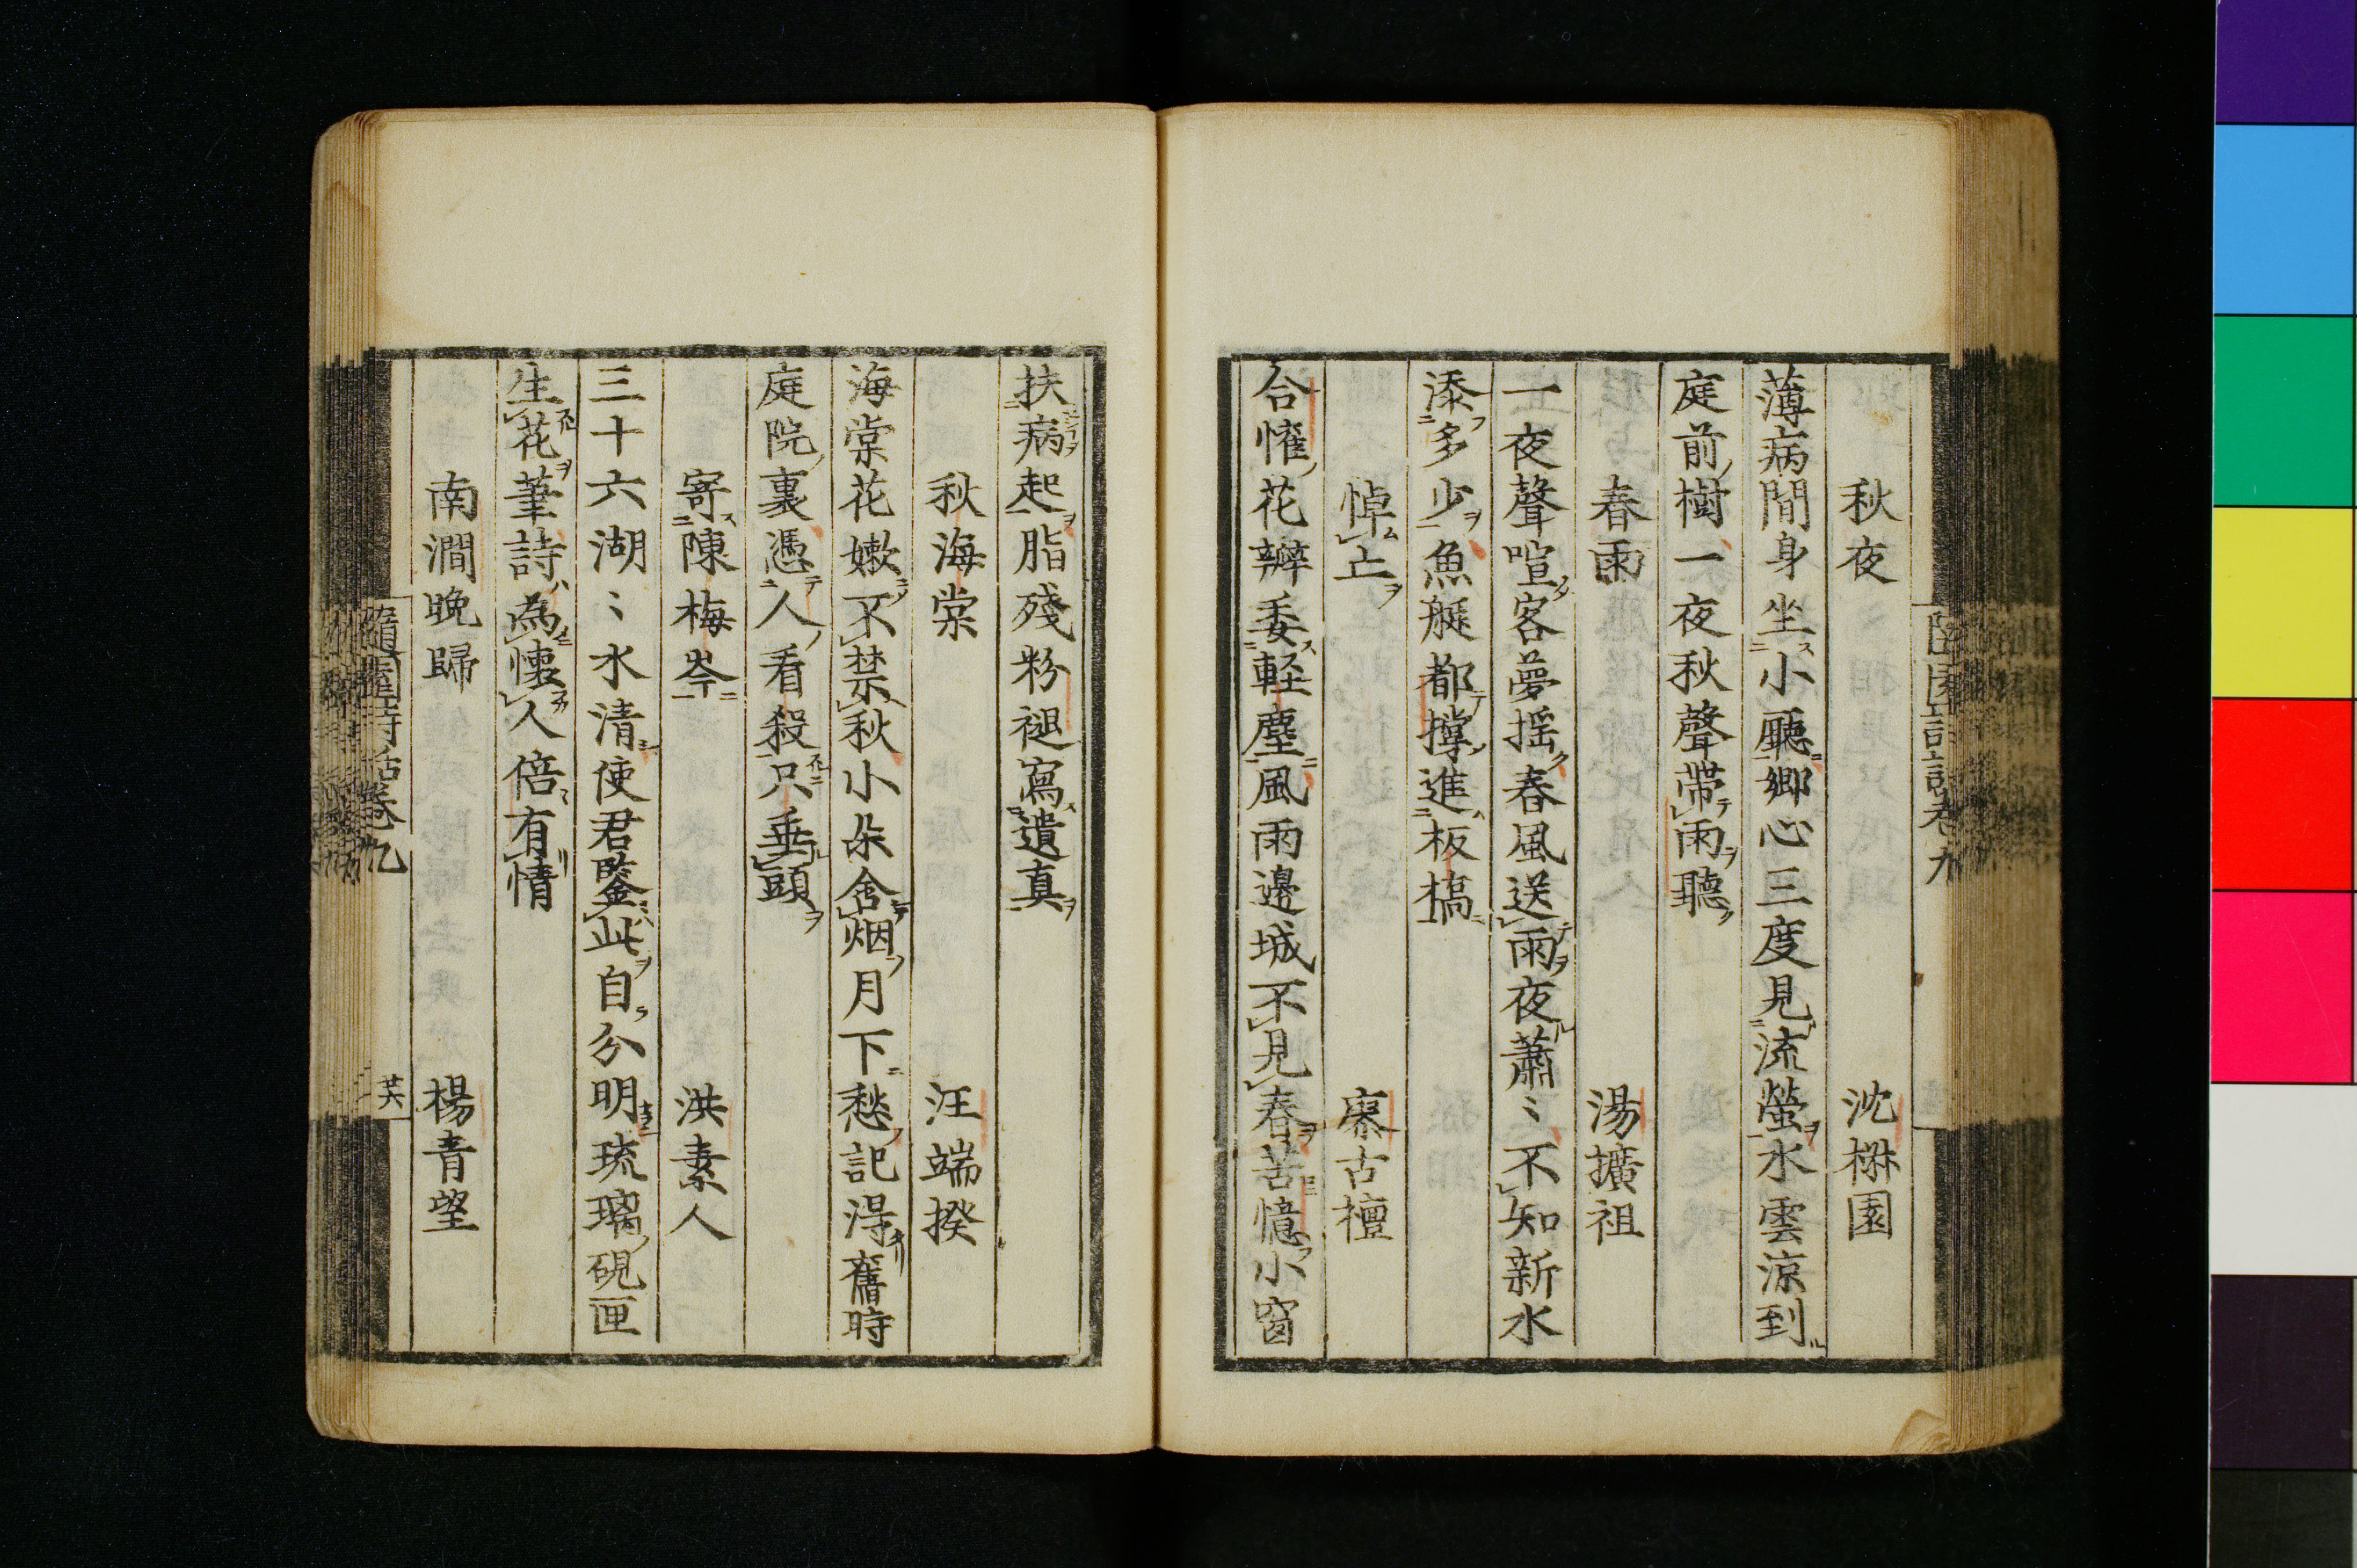 秋夜　沈楙園
薄病間身坐小廳郷心三度見流螢水雲涼到
庭前樹一夜秋聲帶雨聽
春雨　湯擴祖
一夜聲喧客夢揺春風送雨夜蕭〻不知新水
添多少魚艇都撐進板橋
悼亡　古檀
合懽花瓣委輕塵風雨邊城不見春苦憶小窗
扶病起脂殘粉褪寫遺真
秋海棠　汪端揆
海棠花嫩不禁秋小朵含烟月下愁記得舊時
庭院裏憑人看殺只垂頭
寄陳梅岑　洪素人
三十六湖〻水清使君鑒此自分明琉璃硯匣
生花筆詩為懐人倍有情
南澗晩歸　楊青望
隨園詩話卷九